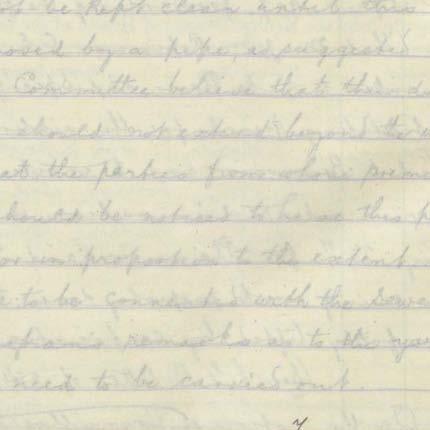 be kept clean until this
by a pipe, as suggested
Committee believe that this
should not extend beyond the
the parties from whose
should be noticed to
in proportion to the extent
to be connected with the Sewer
remarks as to the
need to be carried out.